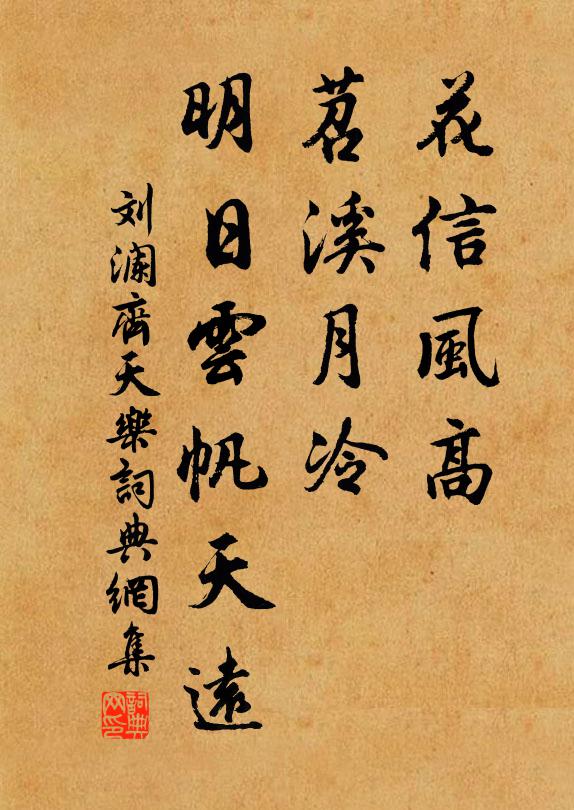 花信風高
苕溪月冷
明日雲帆天遠
刘瀾齊天樂詞典網集
詞典
网印